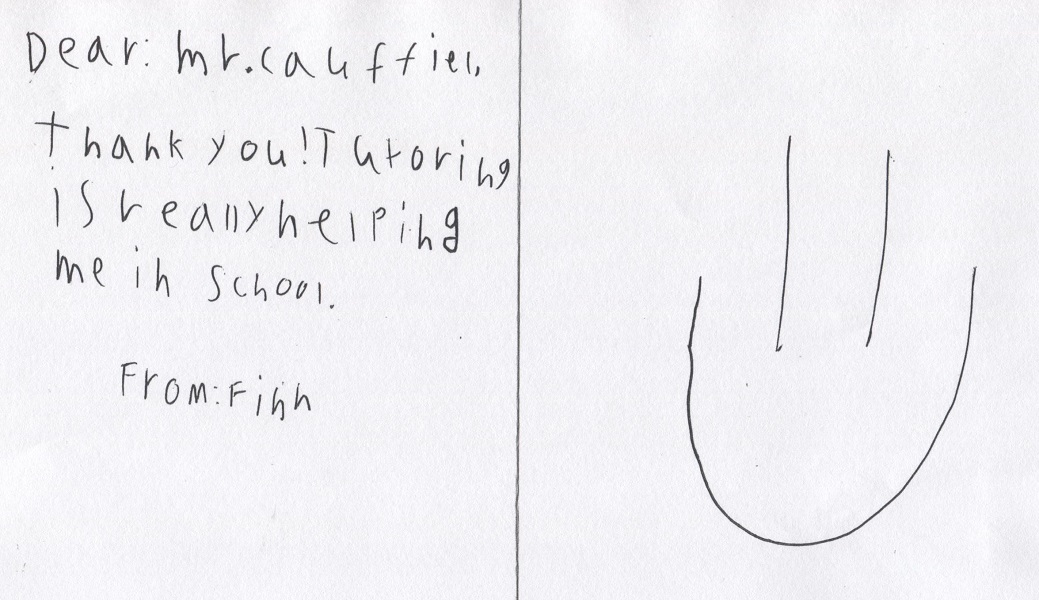 Dear: mr. Cauffiel,
thank you! Tutoring
is really helping
me in school.
From: Finn